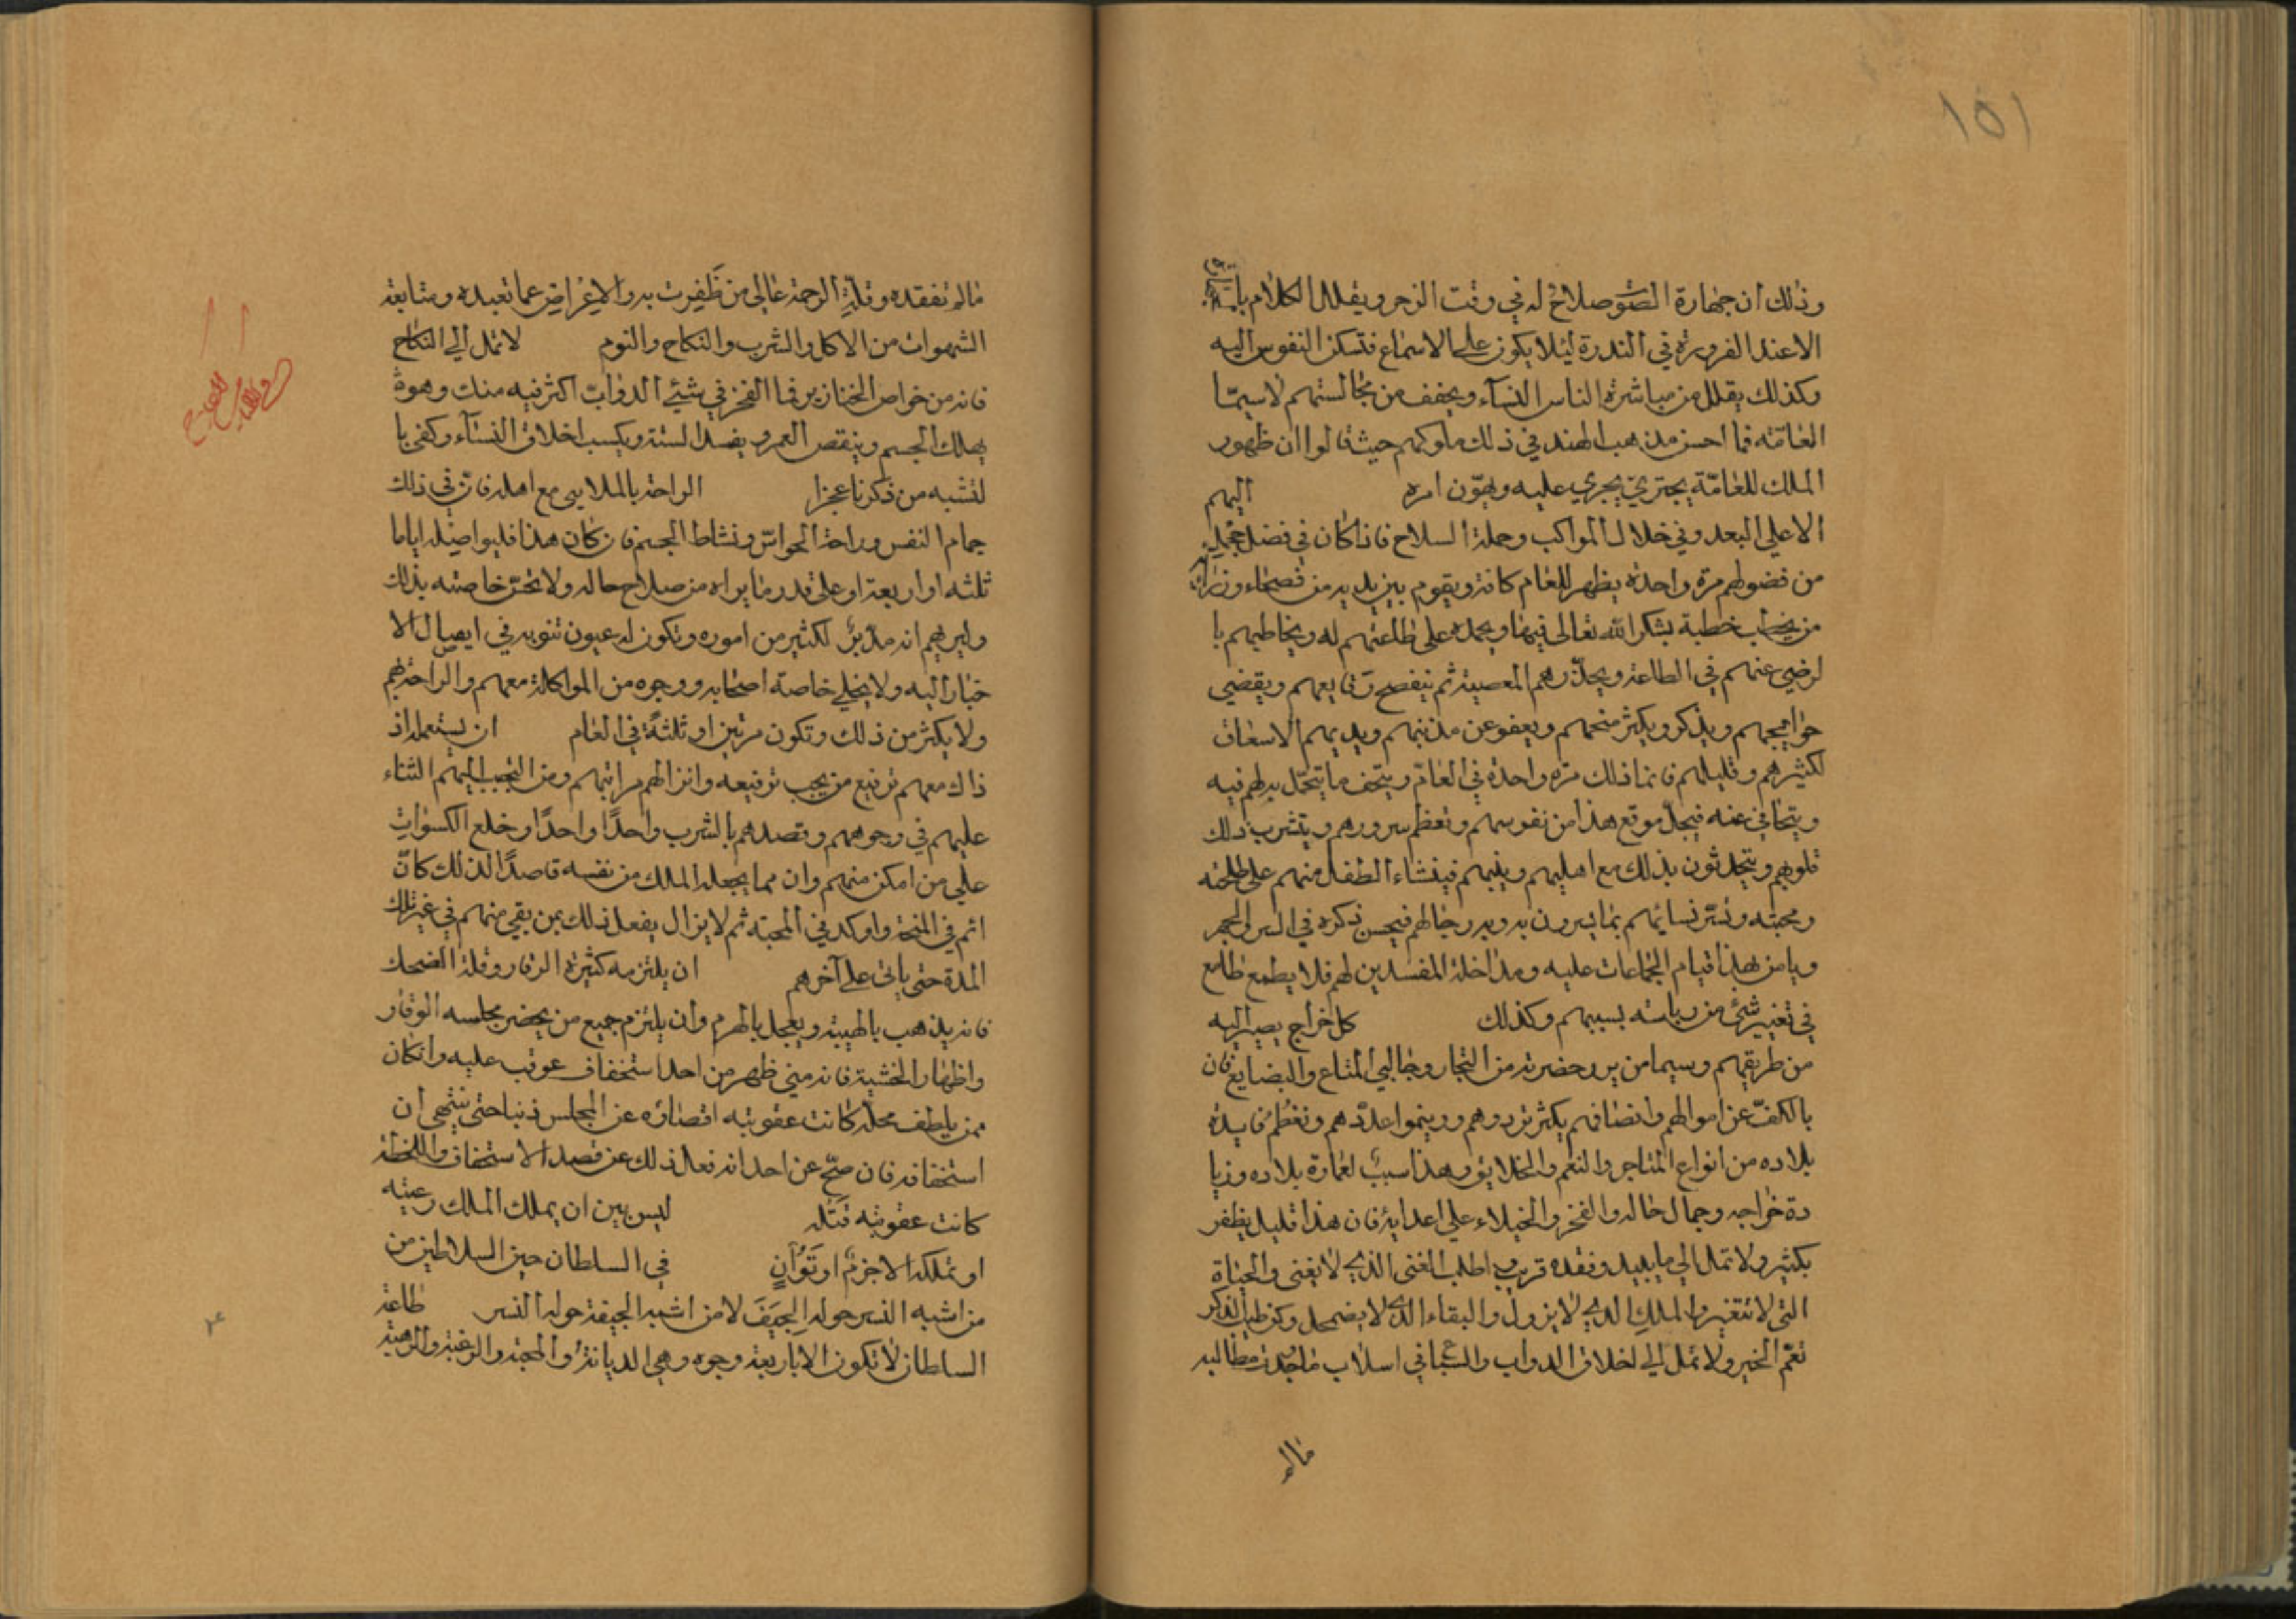 ١٥١
وذلك ان جهارة الصوت صلاح له في وقت الزجر ويقلل الكلام
الا عند الضرورة في الندرة ليلا يكون على الاسماع فتسكن النفوس اليه
وكذلك يقلل من مباشرة الناس النسآء ويخفف من مجالستهم لاسيمّا
العامّة فما احسن مذهب الهند في ذلك ملوكهم حيث قالوا ان ظهور
الملك للعامّة يجتريّ يجري عليه ويهوّن امره اليهم
الا على البعد وفي خلال المواكب وحملة السلاح فاذا كان في فضل
من فضولهم مرة واحدة يظهر للعام كافة ويقوم بين يديه من فصحاء
من يخطب خطبة يشكر الله تعالى فيها ويحمده على طاعتهم له ويخاطبهم با
لرضي عنهم في الطاعة ويحذّرهم المعصية ثم يتفصح وقايعهم ويقضي
حوايجهم ويذكر ويكثر منحهم ويعفو عن مذنبهم ويديهم الاسعاف
لكثيرهم وقليلهم فانما ذلك مرّه واحدة في العام ويتحف ما يتحمّل به لهم فيه
ويتجافى عنه فيجلّ موقع هذا من نفوسهم وتعظم سرورهم ويتشرب ذلك
قلوبهم ويتحدثون بذلك مع اهليهم وبنيهم فينشاء الطفل منهم على طاعته
ومحبته وتسرّ نسائهم بما يسرون به وبه رجالهم فيحسن ذكره في السر والجهر
ويامن بهذا قيام الجماعات عليه ومداخلة المفسدين لهم فلا يطمع طامع
في تغيير شئ من رياسته بسببهم وكذلك كل خراج يصير اليه
من طريقهم وسيما من يرد حضرته من التجار وجالبي المتاع والبضايع فان
بالكفّ عن اموالهم وانصافهم يكثر ترددهم وينموا عددهم وتعظم فايدة
بلاده من انواع المتاجر والنعم والخلايق وهذا سبب لعمارة بلاده وزيا
دة خراجه وجمال حاله والفخر والخيلاء على اعدايه فان هذا قليل يظفر
بكثير ولا تمل الى ما يبيد وفقده قريب اطلب الغنى الذي لا يفنى والحياة
التي لا تتغير والملك الذي لا يزول والبقاء الذي لا يضمحل وكن طيب الذكر
تعّم الخير ولا تمل الى اخلاق الدواب والسباع في اسلاب ما وجدت مطالبه
ماله
ماله تفقده وقلّة الرحمة عالي من ظَفِرت به والاِعْراض عما تعبده ومتابعة
الشهوات من الاكل والشرب والنكاح والنوم لا تمل الي النكاح
فانه من خواص الخنازير فما الفخز في شيئ الدوابّ اكثر فيه منك وهو
يهلك الجسم وينقص العمر ويفسد السنة ويكسب اخلاق النسآء وكفى با
لتشبه من ذكرنا عجزا الراحة بالملاهي مع اهله فان في ذلك
جمام النفس وراحة الحواسّ ونشاط الجسم فان كان هذا فليواصله اياما
ثلثه او اربعة او على قدر ما يراه من صلاح حاله ولا تخصّ خاصته بذلك
وليريهم انه مدبّرٌ لكثير من اموره وتكون له عيون تنويه في ايصال الا
خبار اليه ولا يخلي خاصة اصحابه ووجوه من المواكلة معهم والراحة بهم
ولا يكثر من ذلك وتكون مرتين او ثلثةً في العام ان يستعمل اذ
ذاك معهم ترفيع من يجب ترفيعه وانزالهم مراتبهم ومن التحبب اليهم الثناء
عليهم في وجوههم وقصدهم بالشرب واحدًا واحدًا وخلع الكسوات
على من امكن منهم وان مما يجعله الملك من نفسه قاصدًا لذلك كان
اتم في المنحة واوكد في المحبّة ثم لا يزال يفعل ذلك بمن بقي منهم في غير تلك
المدة حتى ياتى على آخرهم ان يلتزمه كثرة الوقار وقلة الضحك
فانه يذهب بالهيبة ويعجل بالهرم وان يلتزم جميع من يحضر مجلسه الوقار
واظهار الخشية فانه متي ظهر من احد استخفاف عوقب عليه وان كان
ممن يلطف محله كانت عقوبته اقصاؤه عن المجلس ذنبا حتى ينتهى ان
استخفافه فان صحّ عن احد انه فعل ذلك عن قصد الاستخفاف واللخطة
كانت عقوبته قتله ليس بين ان يملك الملك رعيته
او تملكه الا حزمٌ او تَوَانٍ في السلطان حين السلاطين من
من اشبه النسر حوله الجِيَفَ لا من اشبه الجيفة حوله النسر طاعة
السلطان لا تكون الا باربعة وجوه وهي الديانة والمحبة والرغبة والرهبة